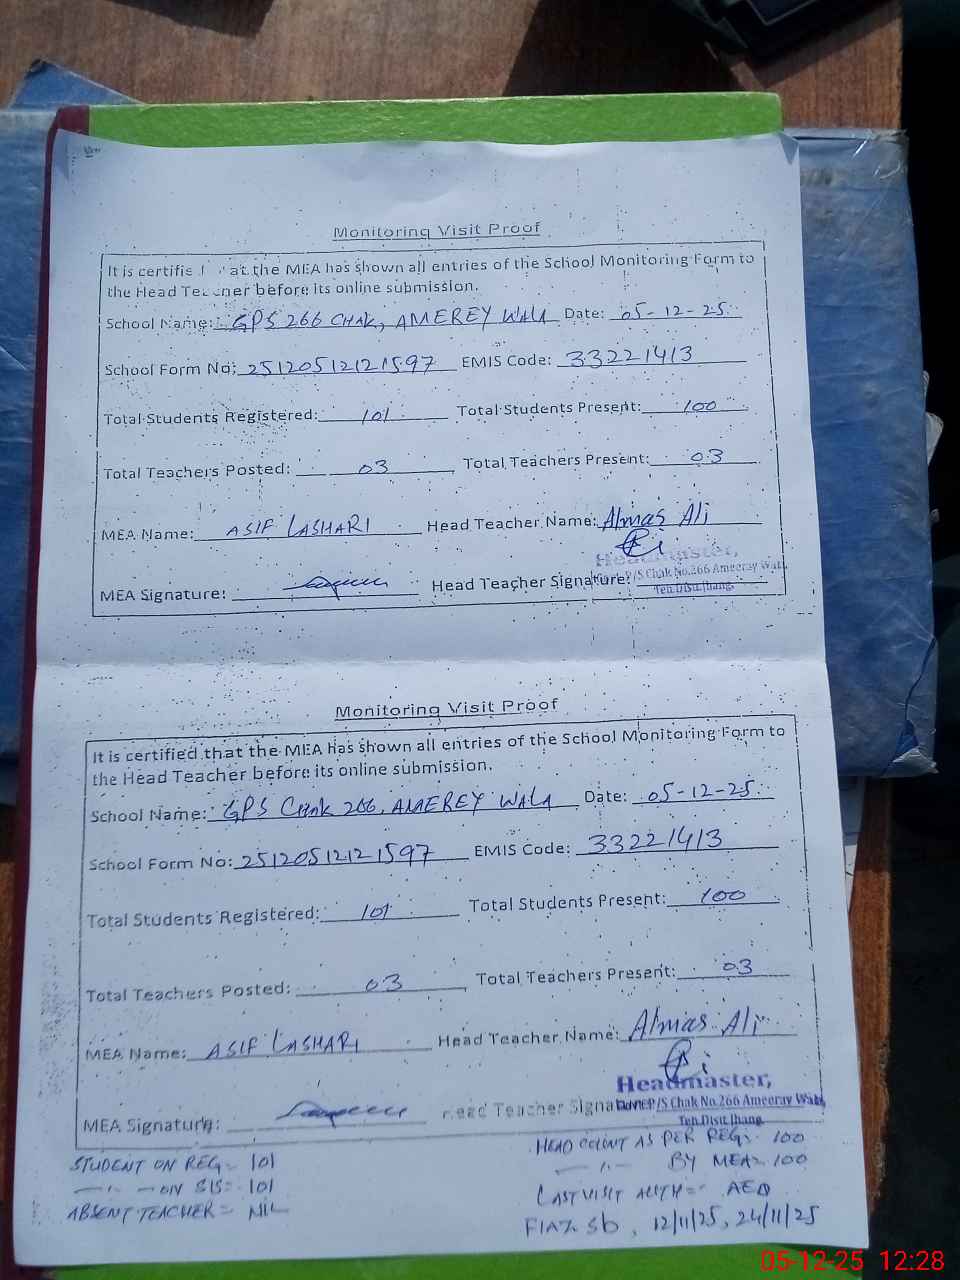 Monitoring Visit Proof
It is certifie at the MEA has shown all entries of the School Monitoring Form to
the Head Teacher before its online submission.
School Name: GPS 266 CHAK, AMEREY WALA Date: 05-12-25
School Form No: 25120512121597 EMIS Code: 33221413
Total Students Registered: 101 Total Students Present: 100
Total Teachers Posted: 03 Total Teachers Present: 03
MEA Name: ASIF LASHARI Head Teacher Name: Almas Ali
Headmaster,
MEA Signature: Head Teacher Signature: P/S Chak No.266 Ameeray Wala
Teh.Distt.Jhang.
Monitoring Visit Proof
It is certified that the MEA has shown all entries of the School Monitoring Form to
the Head Teacher before its online submission.
School Name: GPS Chak 266, AMEREY WALA Date: 05-12-25
School Form No: 25120512121597 EMIS Code: 33221413
Total Students Registered: 101 Total Students Present: 100
Total Teachers Posted: 03 Total Teachers Present: 03
MEA Name: ASIF LASHARI Head Teacher Name: Almas Ali
Headmaster,
MEA Signature: Head Teacher Signature Govt.P/S Chak No.266 Ameeray Wala
Teh.Distt.Jhang.
STUDENT ON REG= 101 HEAD COUNT AS PER REG:- 100
—"— —ON SIS= 101 —"— BY MEA= 100
ABSENT TEACHER= NIL LAST VISIT AUTH=- AEO
FIAZ Sb, 12/11/25, 24/11/25
05-12-25 12:28